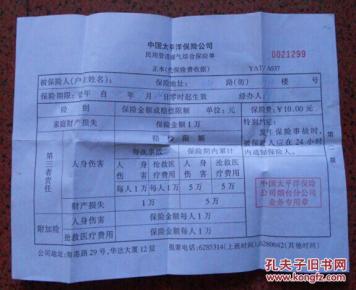 中国太平洋保险公司
民用管道煤气综合保险单
0021299
正本(兼保险费收据) YATV A037
被保险人(户主姓名): 保险地址: 路(街) 楼 号
保险期限: 年 自 年 月 日零时起生效 经办人:
险别 保险金额或赔偿限额 单位:元 保险费:¥10.00元
家庭财产损失 保险金额1万 特别约定:
发生保险事故时,
被保险人应在24小时
内通知保险人。
第三者责任 赔偿限额
每次事故 保险期内累计
人身伤害 人身伤害 抢救医疗费用 人身伤害 抢救医疗费用
每人1万 每人1万 5万 5万
财产损失 1万 5万
附加险 人身伤害 保险金额每人1万
抢救医疗费用 保险金额每人1万
中国太平洋保险
公司烟台分公司
业务专用章
公司地址:海港路29号,华达大厦12层 报案电话:6285314(上班时间) 6280842(其他时间)
孔夫子旧书网